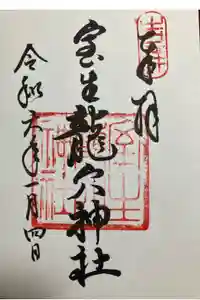 奉拝
室生龍穴神社
令和六年一月四日